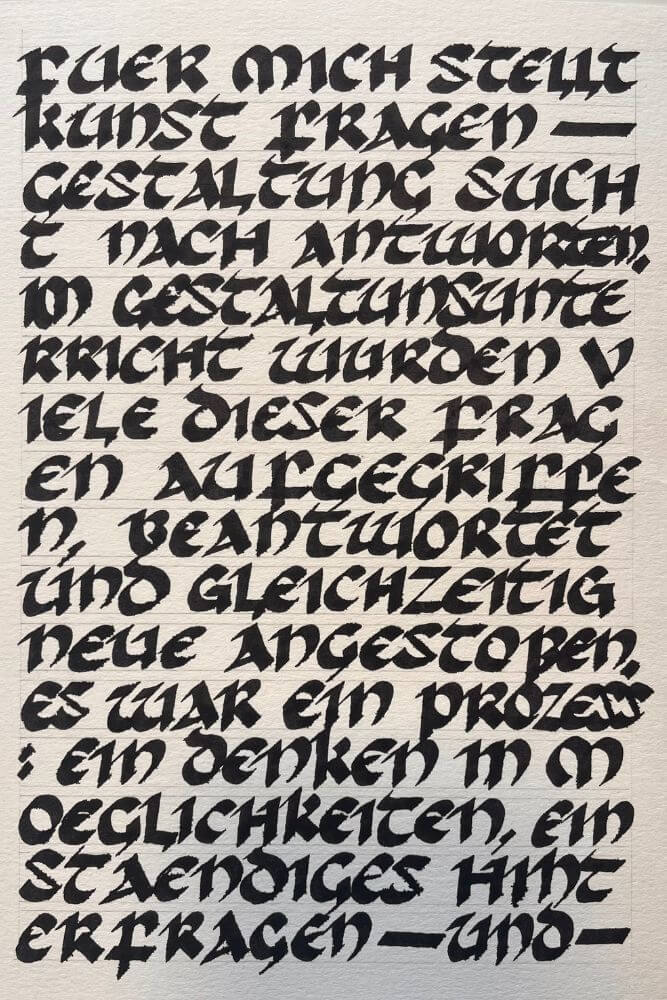 FUER MICH STELLT
KUNST FRAGEN —
GESTALTUNG SUCH
T NACH ANTWORTEN,
IM GESTALTUNSUNTE
RRICHT WURDEN V
IELE DIESER FRAG
EN AUFGEGRIFFE
N, BEANTWORTET
UND GLEICHZEITIG
NEUE ANGESTOßEN,
ES WAR EIN PROZESS
: EIN DENKEN IN M
OEGLICHKEITEN, EIN
STAENDIGES HINT
ERFRAGEN — UND —